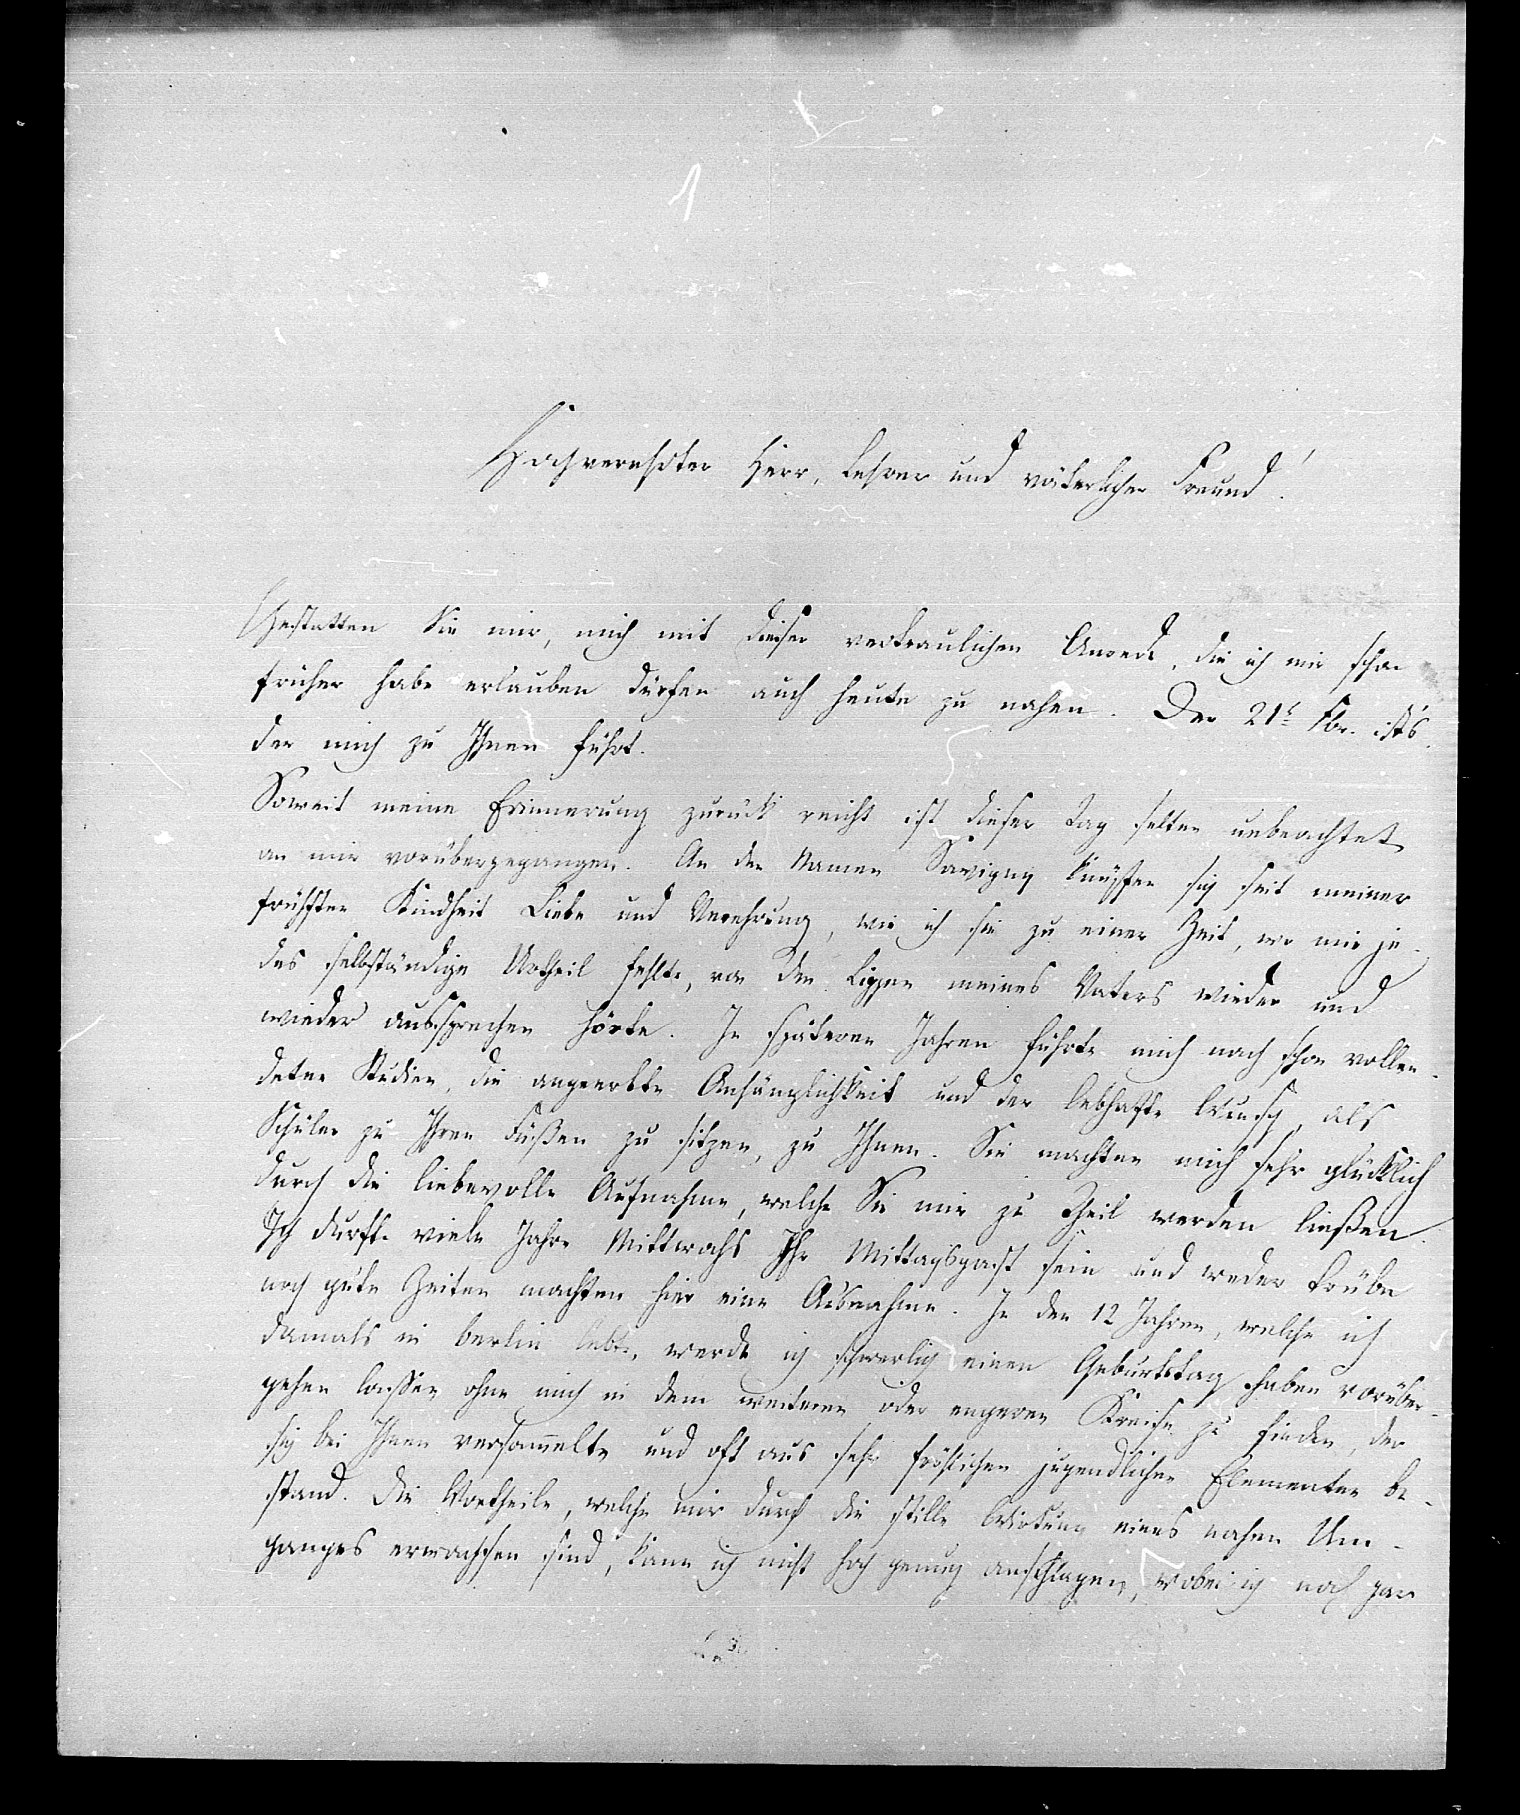 1
Hochverehrter Herr, Lehrer und väterlicher Freund!
Gestatten Sie mir, mich mit dieser vertraulichen Anrede, die ich mir schon
früher habe erlauben dürfen auch heute zu nahen. Der 21t Fbr. ists
der mich zu Ihnen führt.
Soweit meine Erinnerung zurück reicht ist dieser Tag selten unbeachtet
an mir vorübergegangen. An den Namen Savigny knüpfen sich seit meiner
frühsten Kindheit Liebe und Verehrung, wie ich sie zu einer Zeit, wo mir je-
des selbständige Urtheil fehlte, von den Lippen meines Vaters wieder und
wieder aussprechen hörte. In späteren Jahren führte mich nach schon vollen-
deten Studien, die angeerbte Anhänglichkeit und der lebhafte Wunsch, als
Schüler zu Ihren Füßen zu sitzen, zu Ihnen. Sie machten mich sehr glücklich
durch die liebevolle Aufnahme, welche Sie mir zu Theil werden ließen.
Ich durfte viele Jahre Mittwochs Ihr Mittagsgast sein und weder trübe
noch gute Zeiten machten hier eine Ausnahme. In den 12 Jahren, welche ich
damals in Berlin lebte, werde ich schwerlich einen Geburtstag haben vorüber-
gehen lassen ohne mich in dem weiteren oder engeren Kreise zu finden, der
sich bei Ihnen versammelte und oft aus sehr fröhlichen jugendlichen Elementen be-
stand. Die Vortheile, welche mir durch die stille Wirkung eines nahen Um-
ganges erwachsen sind, kann ich nicht hoch genug anschlagen, wobei ich noch gar